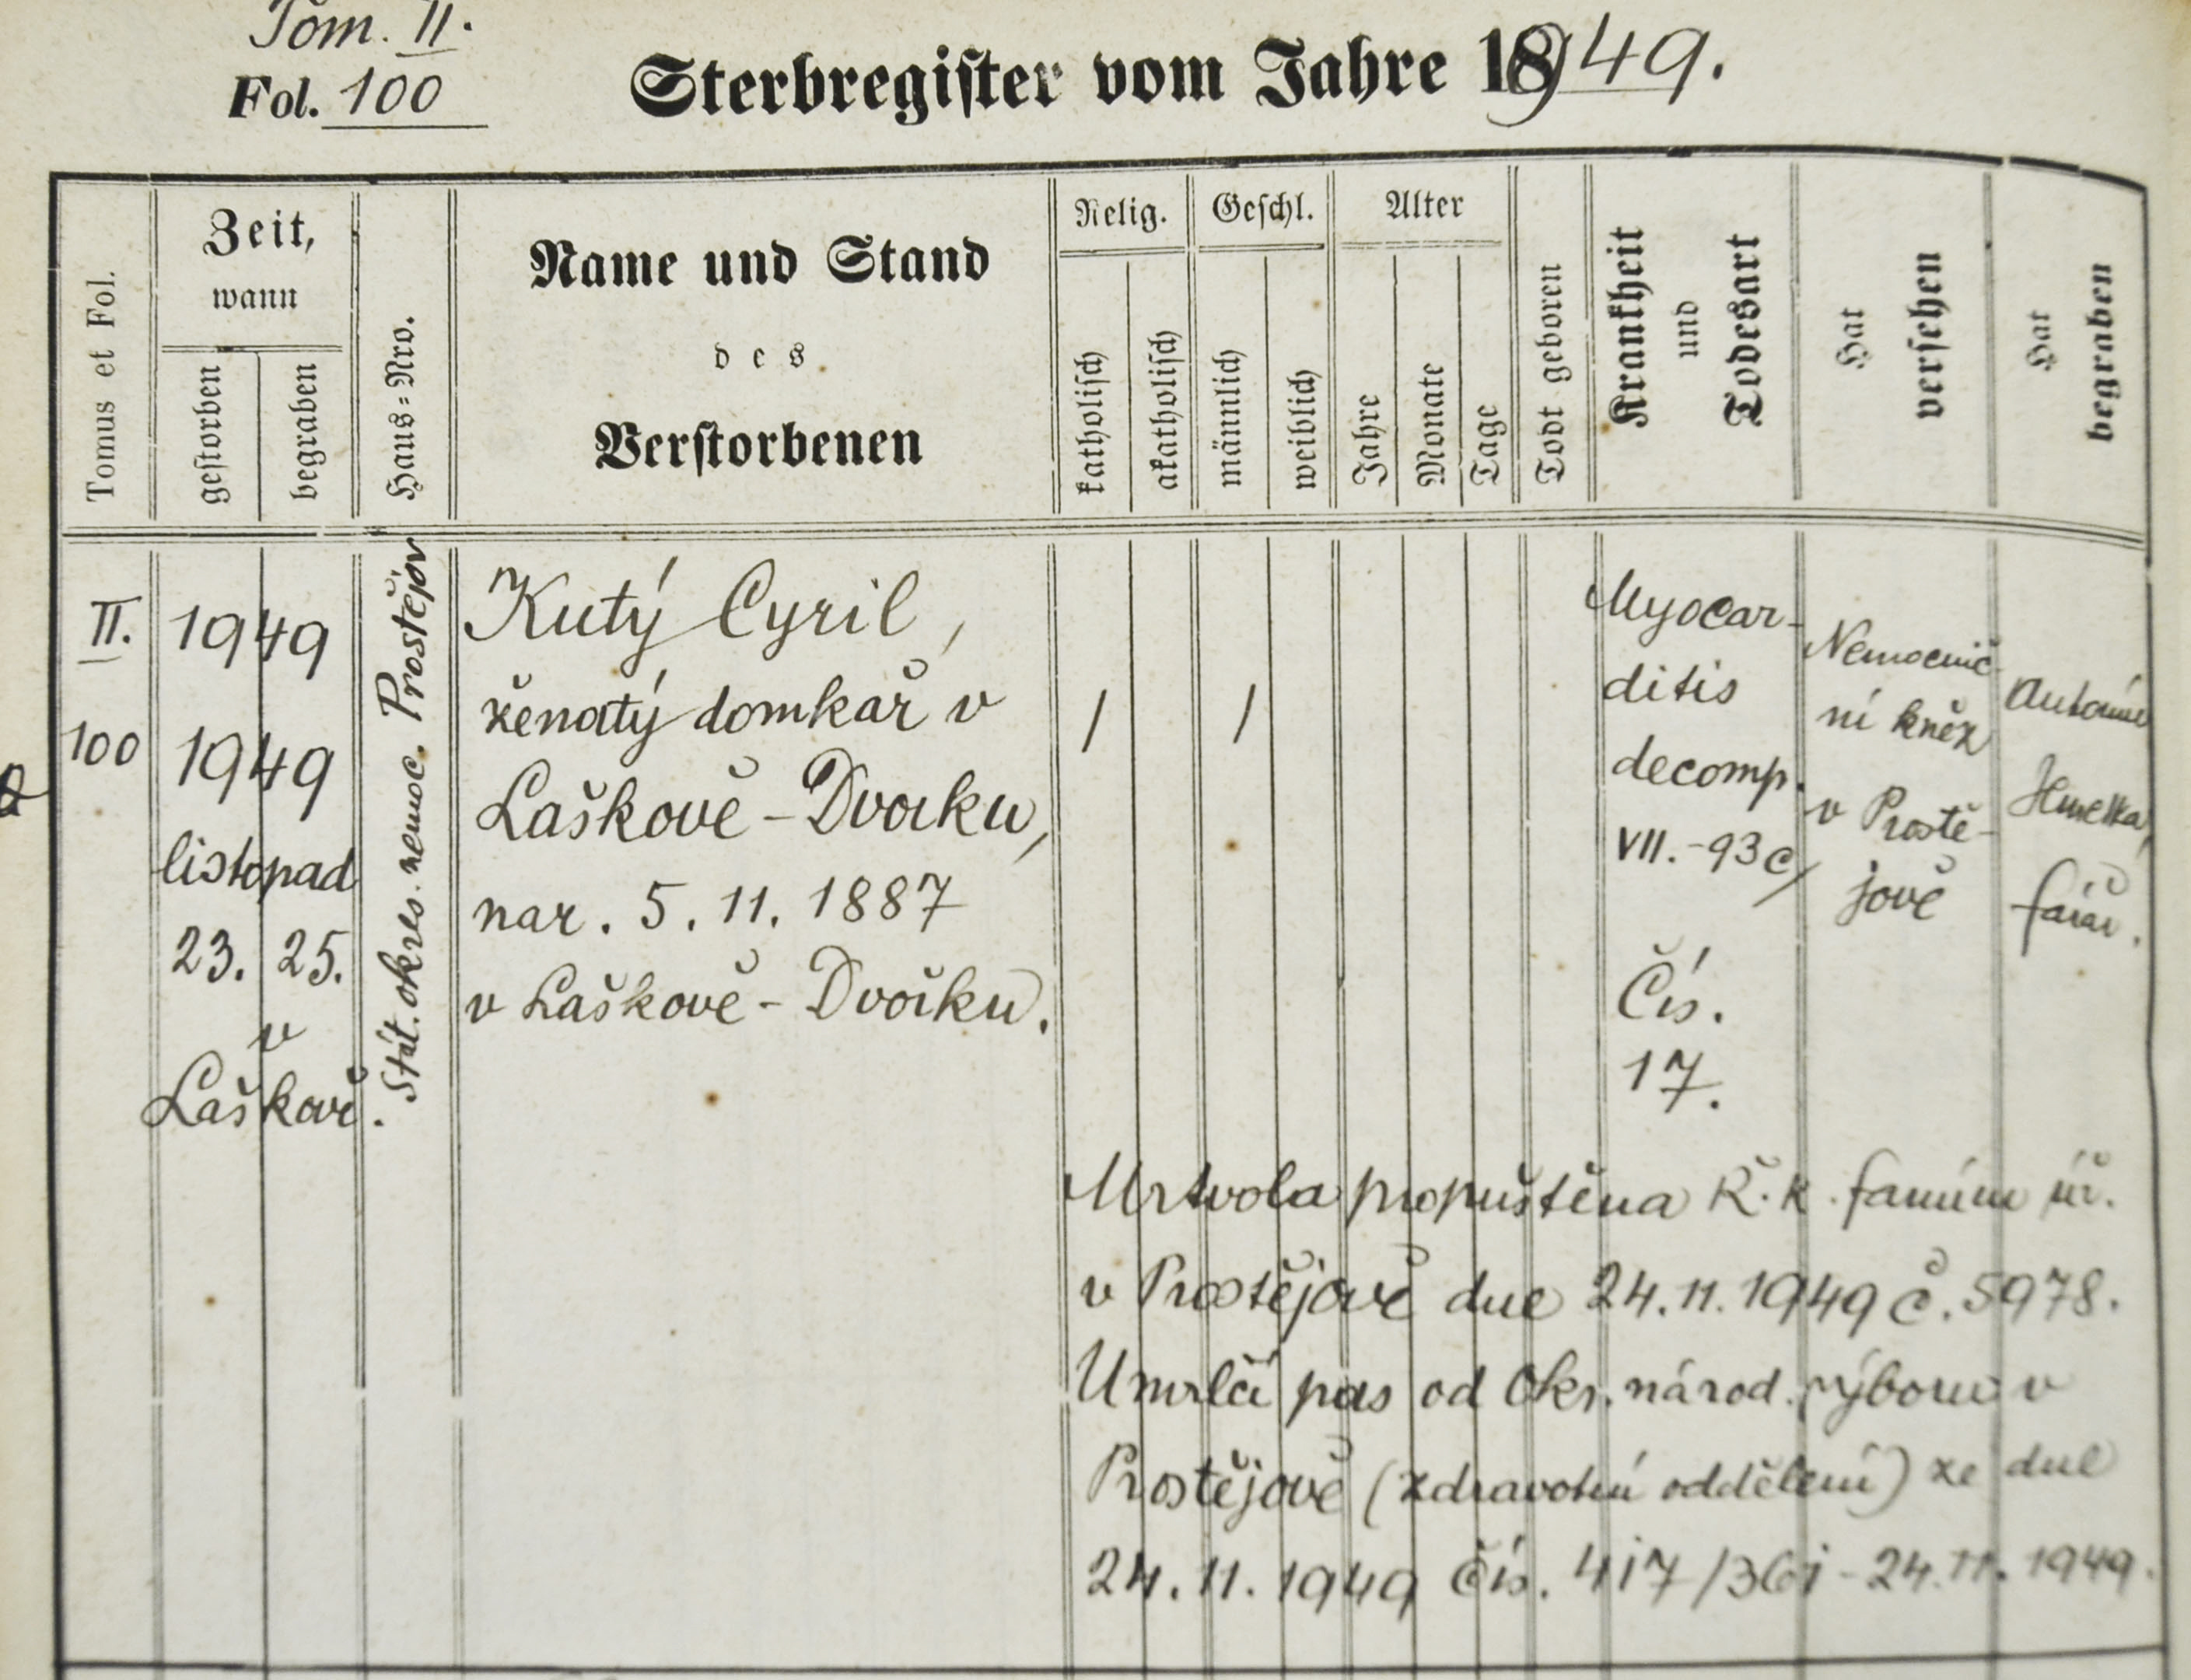 Tom. II.
Fol. 100
Sterbregister vom Jahre 1949.
Tomus et Fol.
Zeit,
wann
gestorben
begraben
Haus-Nro.
Name und Stand
des
Verstorbenen
Relig.
katholisch
akatholisch
Geschl.
männlich
weiblich
Alter
Jahre
Monate
Tage
Todt geboren
Krankheit
und
Todesart
Hat
versehen
Hat
begraben
II.
100
1949
1949
listopad
23. 25.
v
Laškově.
Stát. okres. nemoc. Prostějov
Kutý Cyril,
ženatý domkař v
Laškově - Dvorku,
nar. 5. 11. 1887
v Laškově - Dvořku.
/
/
Myocar-
ditis
decomp.
VII. - 93 c/
Čís.
17.
Nemocnič
ní kněz
v Prostě-
jově
Antonín
farář.
Mrtvola propuštěna Ř. k. farním úř.
v Prostějově dne 24. 11. 1949 č. 5978.
Umrlčí pas od Okr. národ. výboru v
Prostějově (zdravotní oddělení) ze dne
24. 11. 1949 čís. 417/361 - 24. 11. 1949.